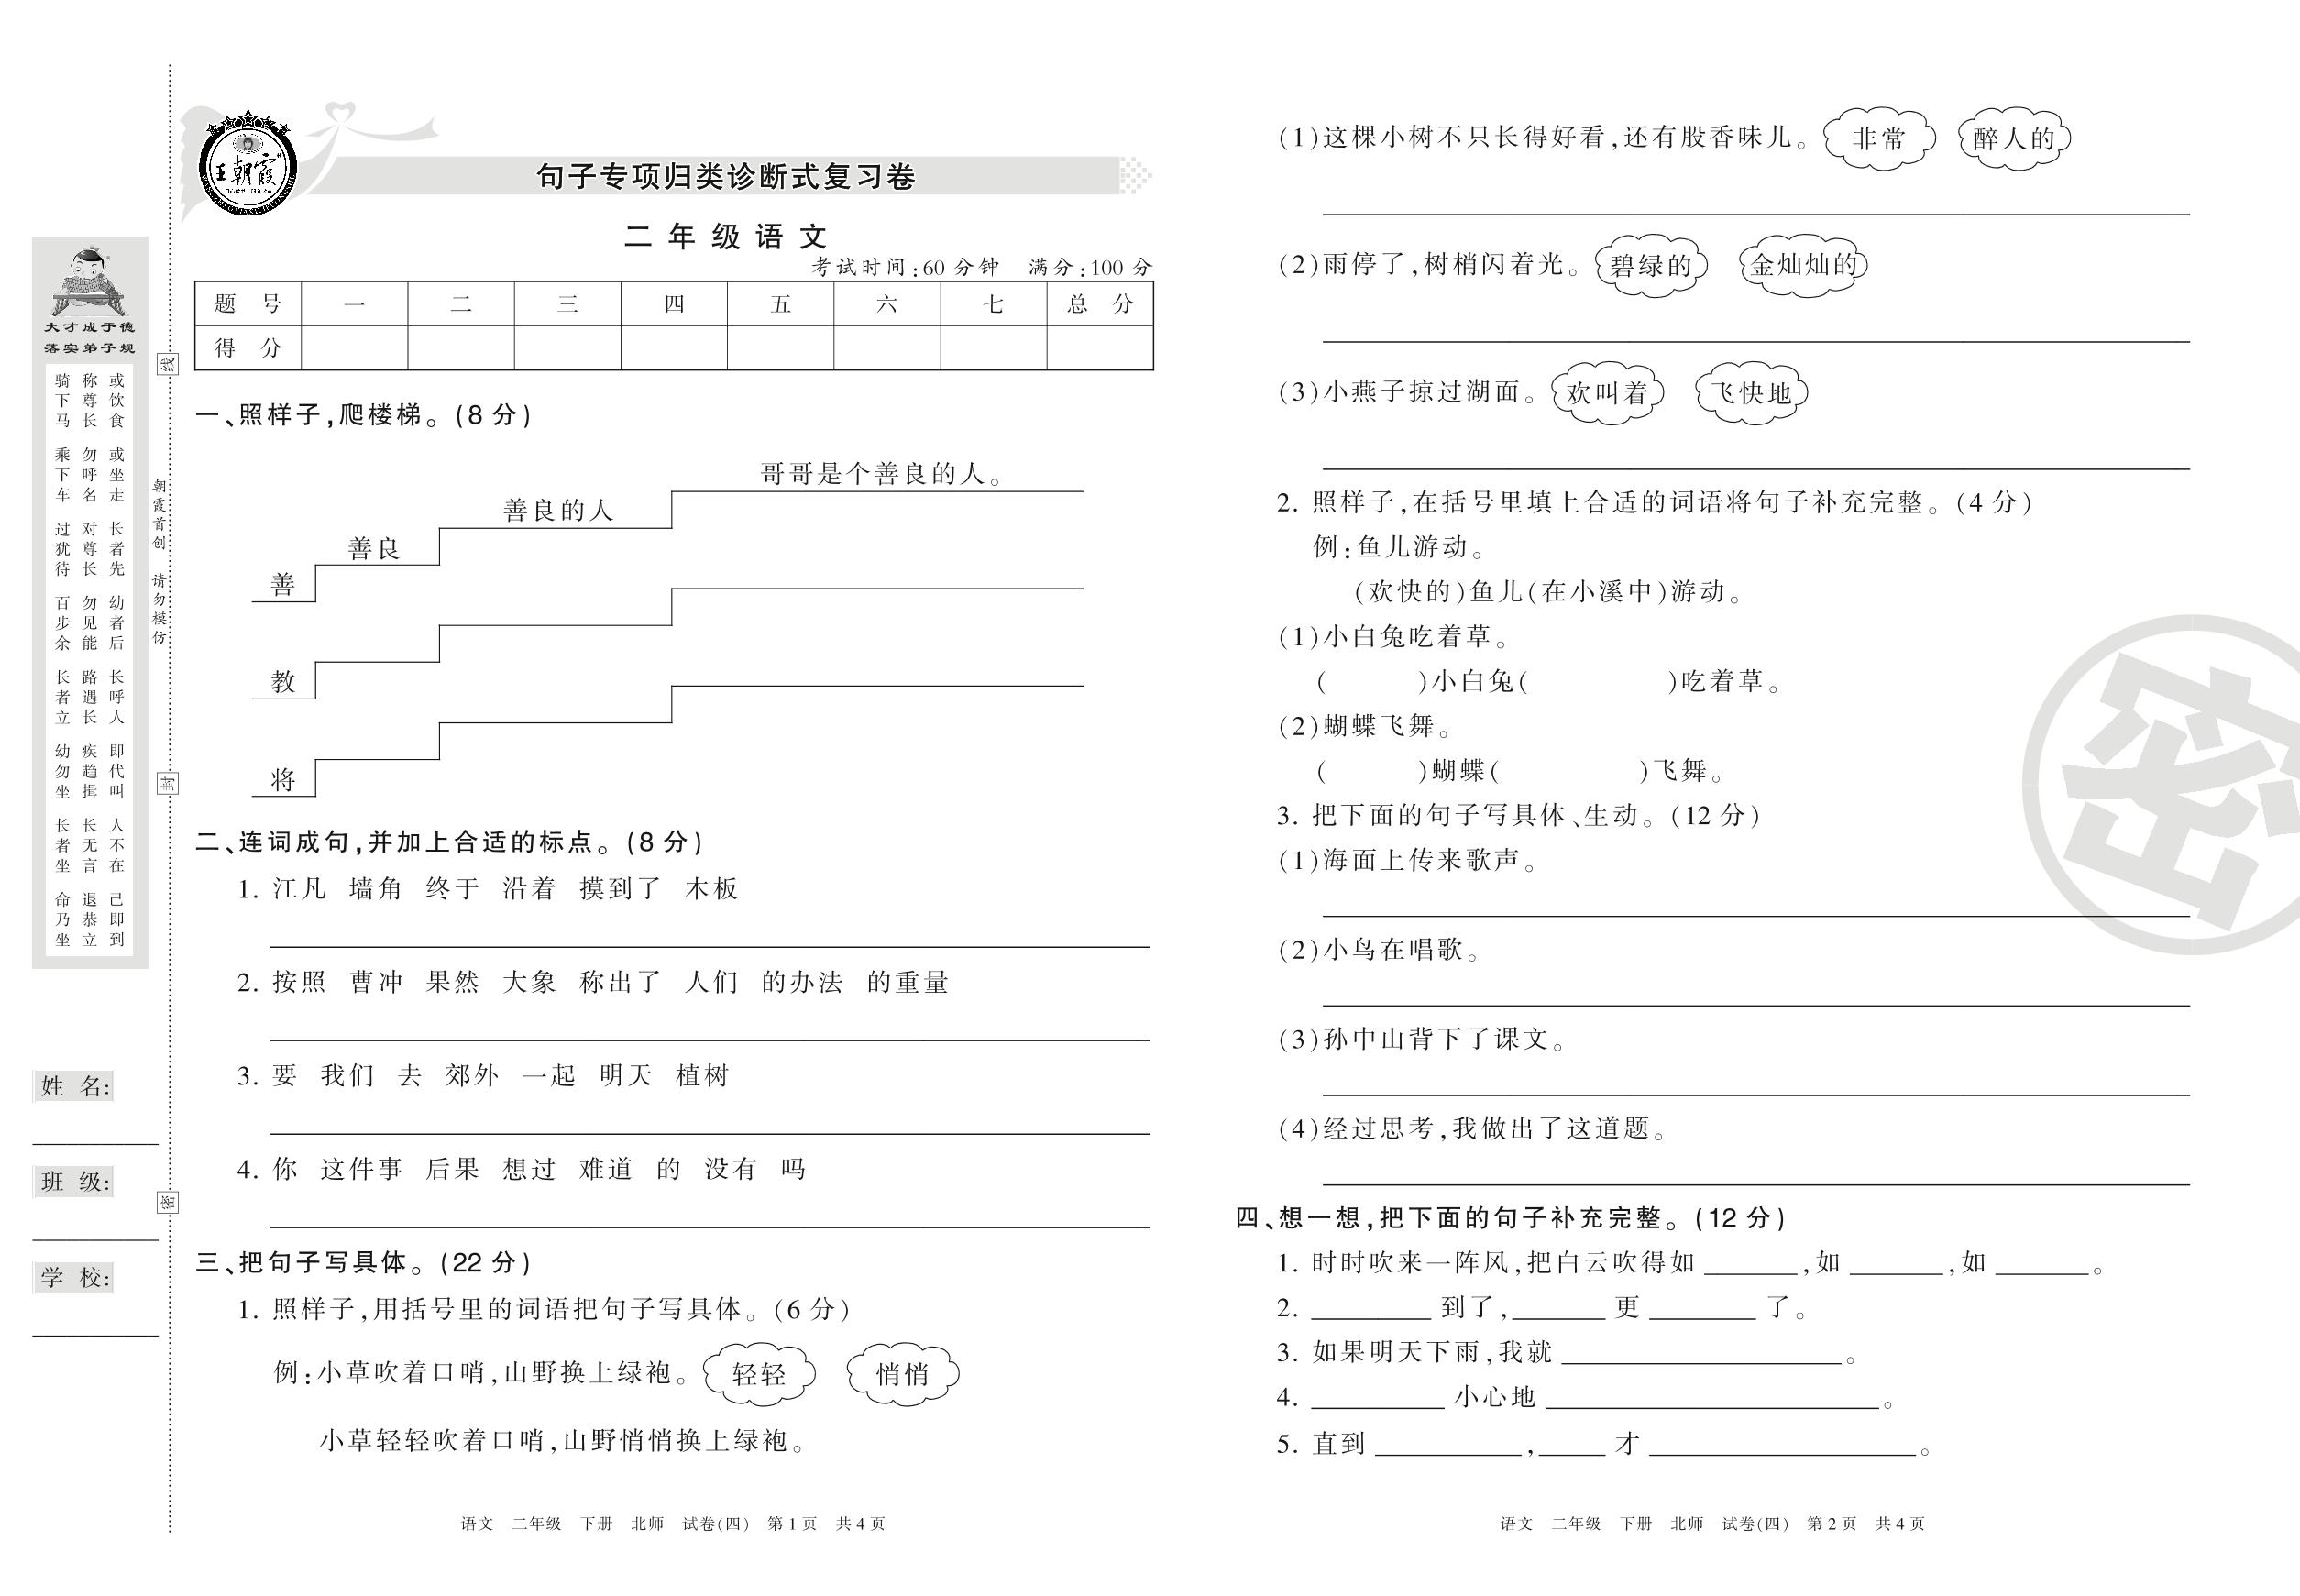 王朝霞
句子专项归类诊断式复习卷
二年级语文
考试时间:60分钟 满分:100分
题 号 一 二 三 四 五 六 七 总 分
得 分
一、照样子,爬楼梯。(8分)
哥哥是个善良的人。
善良的人
善良
善
教
将
二、连词成句,并加上合适的标点。(8分)
1. 江凡 墙角 终于 沿着 摸到了 木板
2. 按照 曹冲 果然 大象 称出了 人们 的办法 的重量
3. 要 我们 去 郊外 一起 明天 植树
4. 你 这件事 后果 想过 难道 的 没有 吗
三、把句子写具体。(22分)
1. 照样子,用括号里的词语把句子写具体。(6分)
例:小草吹着口哨,山野换上绿袍。 轻轻 悄悄
小草轻轻吹着口哨,山野悄悄换上绿袍。
语文 二年级 下册 北师 试卷(四) 第1页 共4页
大才成于德
落实弟子规
或饮食 或坐走 长者先 幼者后 长呼人 即代叫 人不在 己即到
称尊长 勿呼名 对尊长 勿见能 路遇长 疾趋揖 长无言 退恭立
骑下马 乘下车 过犹待 百步余 长者立 幼勿坐 长者坐 命乃坐
朝霞首创 请勿模仿
线
封
密
姓 名:
班 级:
学 校:
(1)这棵小树不只长得好看,还有股香味儿。 非常 醉人的
(2)雨停了,树梢闪着光。 碧绿的 金灿灿的
(3)小燕子掠过湖面。 欢叫着 飞快地
2. 照样子,在括号里填上合适的词语将句子补充完整。(4分)
例:鱼儿游动。
(欢快的)鱼儿(在小溪中)游动。
(1)小白兔吃着草。
( )小白兔( )吃着草。
(2)蝴蝶飞舞。
( )蝴蝶( )飞舞。
3. 把下面的句子写具体、生动。(12分)
(1)海面上传来歌声。
(2)小鸟在唱歌。
(3)孙中山背下了课文。
(4)经过思考,我做出了这道题。
四、想一想,把下面的句子补充完整。(12分)
1. 时时吹来一阵风,把白云吹得如______,如______,如______。
2. ______到了,______更______了。
3. 如果明天下雨,我就______。
4. ______小心地______。
5. 直到______,______才______。
语文 二年级 下册 北师 试卷(四) 第2页 共4页
密